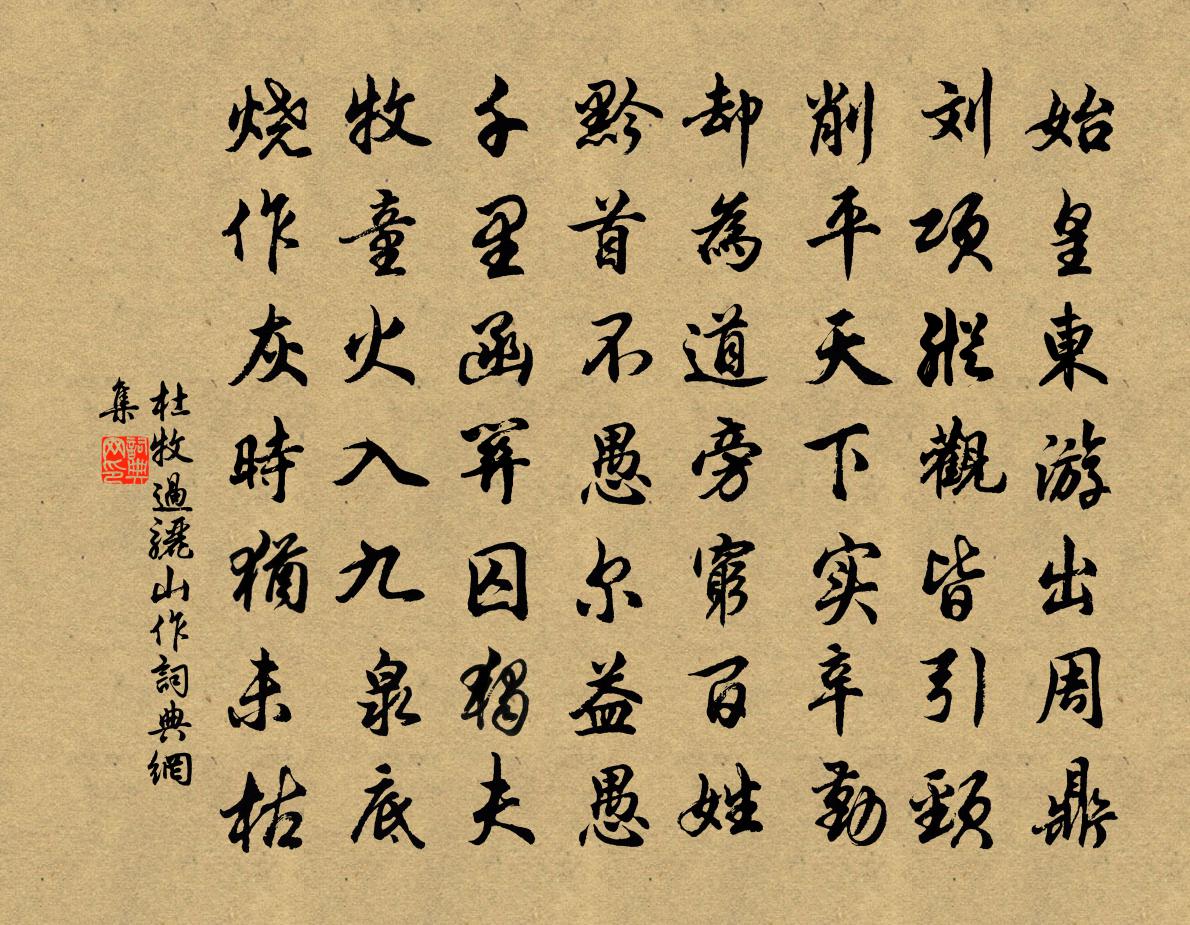 始皇東游出周鼎
刘项縱觀皆引頸
削平天下实辛勤
却為道旁窮百姓
黔首不愚尔益愚
千里函關囚獨夫
牧童火入九泉底
烧作灰時猶未枯
杜牧過驪山作詞典網
集
詞典
网印